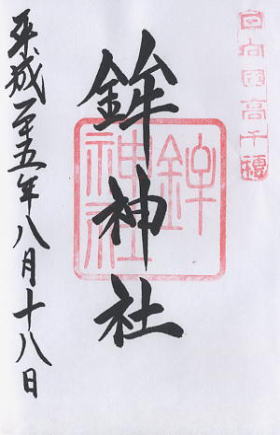 日向國高千穂
鉾神社
鉾神社
平成二十五年八月十八日